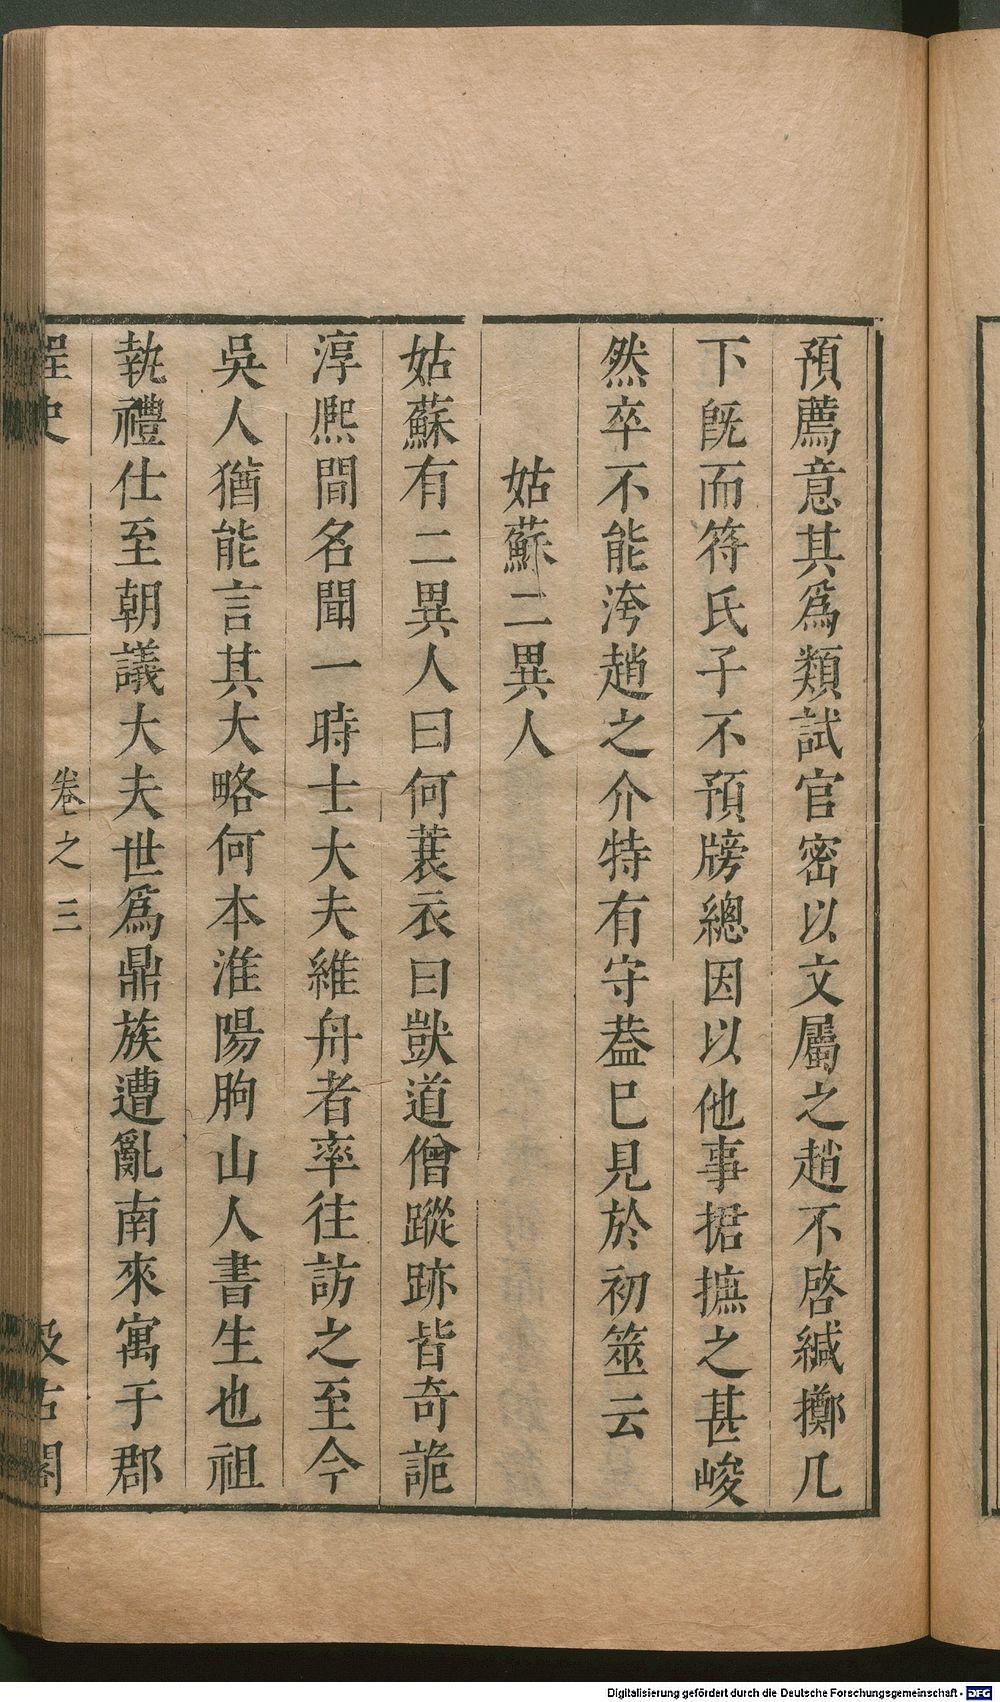 預薦意其爲類試官密以文屬之趙不啓緘擲几
下旣而符氏子不預牓總因以他事捃摭之甚峻
然卒不能洿趙之介特有守葢巳見於初筮云
姑蘇二異人
姑蘇有二異人曰何蓑衣曰獃道僧蹤跡皆奇詭
淳熈間名聞一時士大夫維舟者率往訪之至今
吳人猶能言其大略何本淮陽朐山人書生也祖
執禮仕至朝議大夫世爲鼎族遭亂南來寓于郡
桯史 卷之三 汲古閣
Digitalisierung gefördert durch die Deutsche Forschungsgemeinschaft - DFG